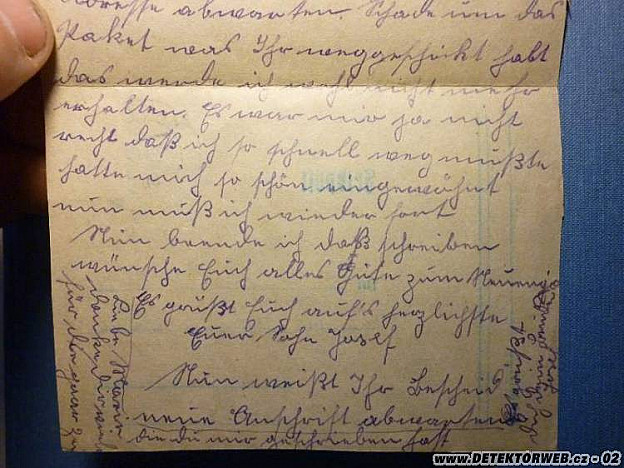 Adresse abwarten. Schade um das
Paket was Ihr weggeschickt habt
das werde ich wohl nicht mehr
erhalten. Es war mir ja nicht
recht daß ich so schnell weg mußte
hatte mich so schön eingewöhnt
nun muß ich wieder fort
Nun beende ich daß schreiben
wünsche Euch alles Gute zum Neuen
Es grüßt Euch auf's herzlichste
Euer Sohn Josef
Nun weißt Ihr Bescheid
neue Anschrift abwarten
die du mir geschrieben hast
Liebe
danke dir
für den
www.DETEKTORWEB.cz - 02